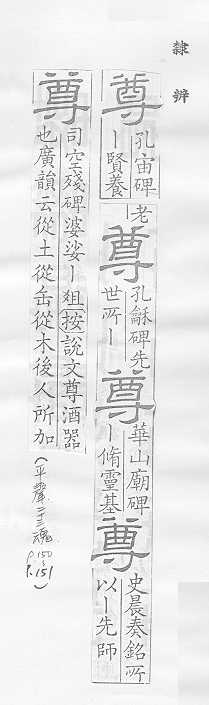 隸辨
尊
孔宙碑
｜賢養
老｜
尊
孔龢碑先
世所｜
尊
華山廟碑
｜脩靈基
尊
史晨奏銘所
以｜先師
尊
司空殘碑婆娑｜俎按說文尊酒器
也廣韻云從土從缶從木後人所加
(平聲二十三魂
P.150
P.151)